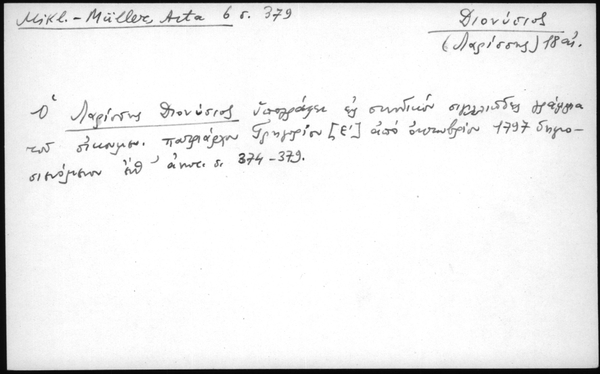 Mikl.-Müller, Acta 6 σ. 379
Διονύσιος
(Λαρίσσης) 18 αἰ.
Ὁ Λαρίσσης Διονύσιος ὑπογράφει εἰς συνοδικόν σιγιλλιῶδες γράμμα
τοῦ οἰκουμεν. πατριάρχου Γρηγορίου [Ε'] ἀπό ὀκτωβρίου 1797 δημο-
σιευόμενον ἐνθ' ἀνωτ. σ. 374-379.